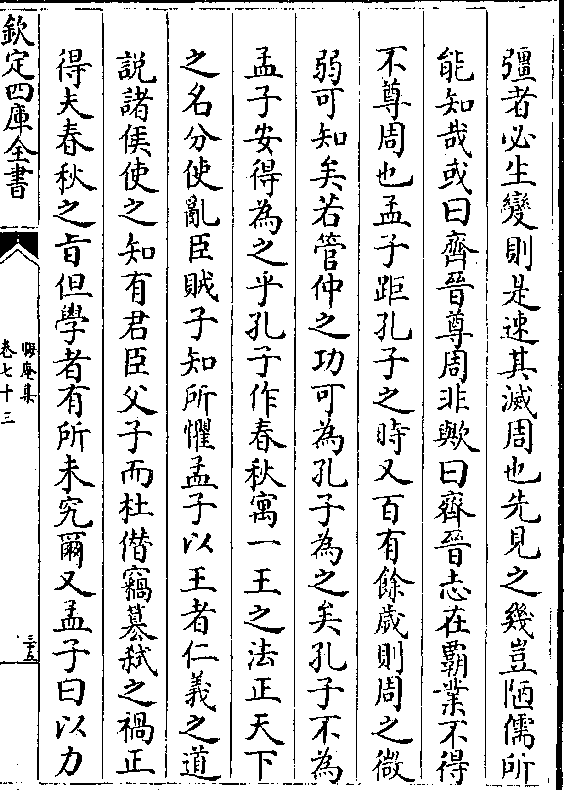 彊者必生變則是速其滅周也先見之幾豈陋儒所
能知哉或曰齊晉尊周非歟曰齊晉志在霸業不得
不尊周也孟子距孔子之時又百有餘歲則周之微
弱可知矣若管仲之功可為孔子為之矣孔子不為
孟子安得為之乎孔子作春秋寓一王之法正天下
之名分使亂臣賊子知所懼孟子以王者仁義之道
説諸侯使之知有君臣父子而杜僭竊簒弑之禍正
得夫春秋之㫖但學者有所未究爾又孟子曰以力
欽定四庫全書
晦庵集
卷七十三
三五